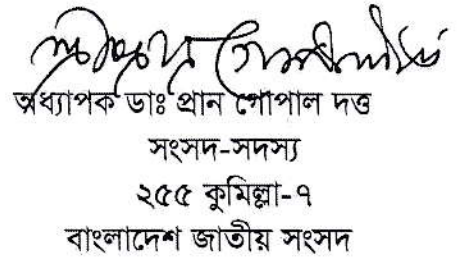 অধ্যাপক ডাঃ প্রান গোপাল দত্ত
সংসদ-সদস্য
২৫৫ কুমিল্লা-৭
বাংলাদেশ জাতীয় সংসদ